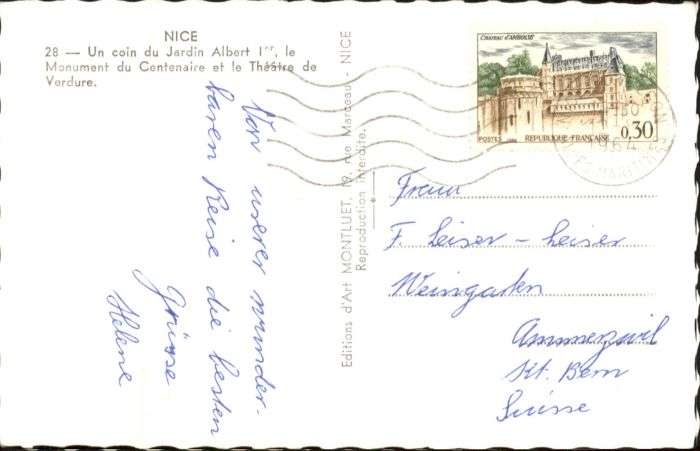 NICE
28 — Un coin du Jardin Albert Iᵉʳ, le
Monument du Centenaire et le Théâtre de
Verdure.
Von userer wunder-
baren Reise die besten
Grüsse
Helene
Editions d'Art MONTLUET, 19, rue Marceau - NICE
Reproduction interdite.
CHATEAU d'AMBOISE
POSTES
REPUBLIQUE-FRANÇAISE
0,30
1964
Frau
F. Leiser - Leiser
Weingarten
Ammerzwil
Kt. Bern
Suisse